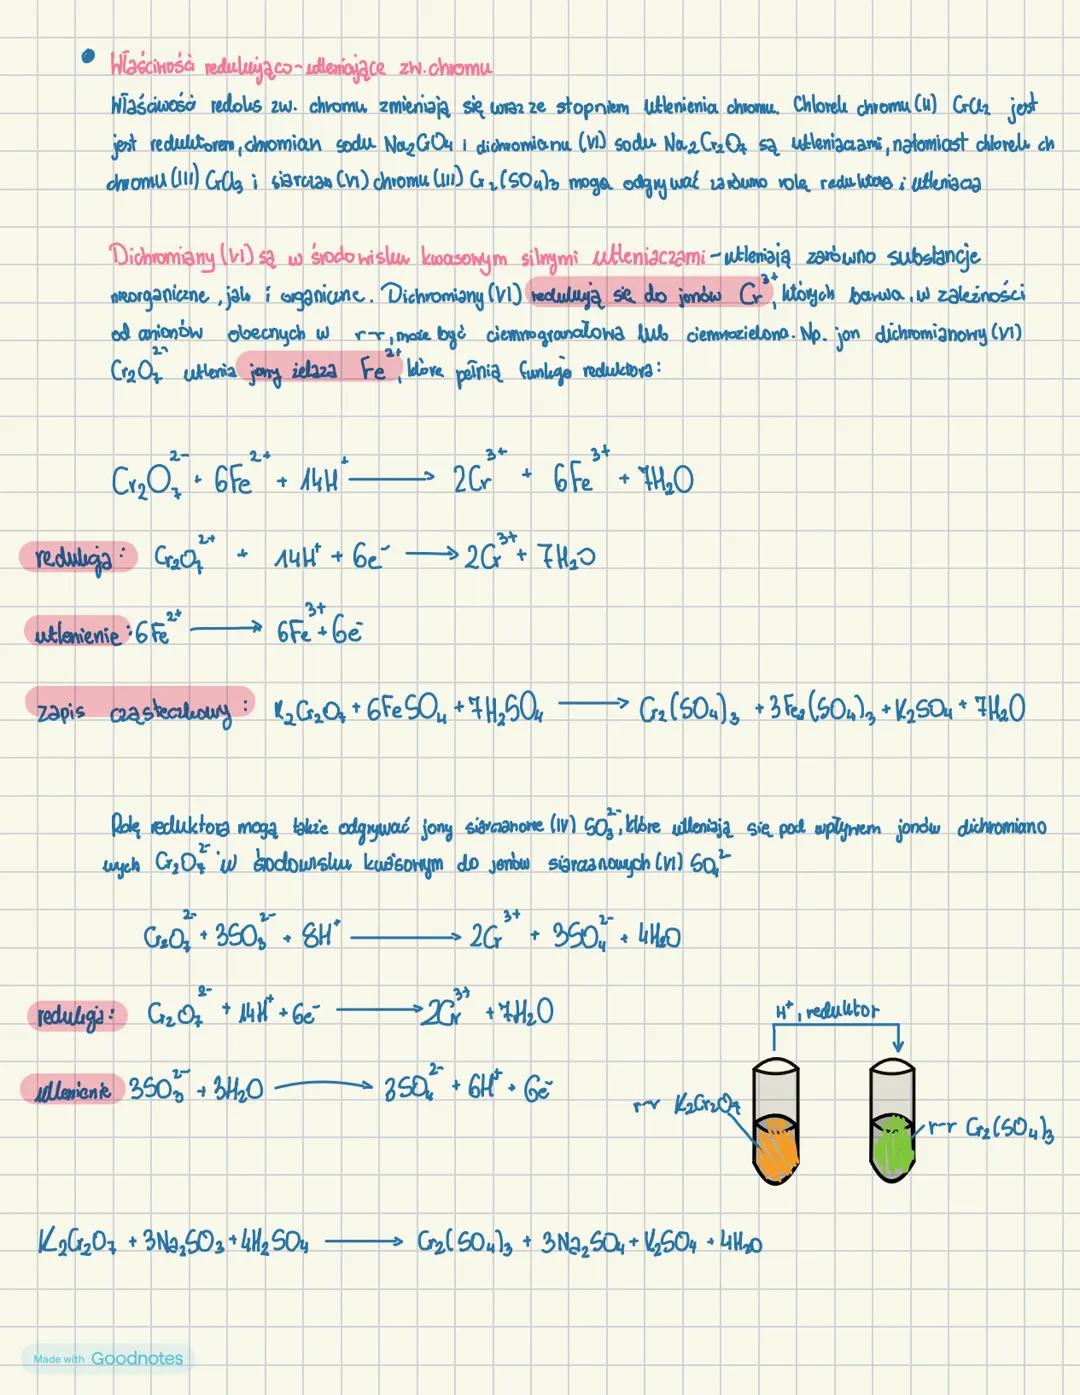 • Właściwości redukująco-utleniające zw. chromu
Właściwości redoks zw. chromu zmieniają się wraz ze stopniem utlenienia chromu. Chlorek chromu (II) CrCl₂ jest
jest reduktorem, chromian sodu Na₂CrO₄ i dichromianu (VI) sodu Na₂Cr₂O₇ są utleniaczami, natomiast chlorek ch
chromu (III) CrCl₃ i siarczan (VI) chromu (III) Cr₂(SO₄)₃ mogą odgrywać zarówno rolę reduktora i utleniacza
Dichromiany (VI) są w środowisku kwasowym silnymi utleniaczami - utleniają zarówno substancje
nieorganiczne, jak i organiczne. Dichromiany (VI) redukują się do jonów Cr³⁺, których barwa, w zależności
od anionów obecnych w r-r, może być ciemnogranatowa lub ciemnozielona. Np. jon dichromianowy (VI)
Cr₂O₇²⁻ utlenia jony żelaza Fe²⁺, które pełnią funkcję reduktora:
Cr₂O₇²⁻ + 6Fe²⁺ + 14H⁺ ⟶ 2Cr³⁺ + 6Fe³⁺ + 7H₂O
redukcja: Cr₂O₇²⁺ + 14H⁺ + 6e⁻ ⟶ 2Cr³⁺ + 7H₂O
utlenienie: 6Fe²⁺ ⟶ 6Fe³⁺ + 6e⁻
zapis cząsteczkowy: K₂Cr₂O₇ + 6FeSO₄ + 7H₂SO₄ ⟶ Cr₂(SO₄)₃ + 3Fe₂(SO₄)₃ + K₂SO₄ + 7H₂O
Rolę reduktora mogą także odgrywać jony siarczanowe (IV) SO₃²⁻, które utleniają się pod wpływem jonów dichromiano
wych Cr₂O₇²⁻ w środowisku kwasowym do jonów siarczanowych (VI) SO₄²⁻
Cr₂O₇²⁻ + 3SO₃²⁻ + 8H⁺ ⟶ 2Cr³⁺ + 3SO₄²⁻ + 4H₂O
redukcja: Cr₂O₇²⁻ + 14H⁺ + 6e⁻ ⟶ 2Cr³⁺ + 7H₂O
utlenienie 3SO₃²⁻ + 3H₂O ⟶ 3SO₄²⁻ + 6H⁺ + 6e⁻
H⁺, reduktor
r-r K₂Cr₂O₇
r-r Cr₂(SO₄)₃
K₂Cr₂O₇ + 3Na₂SO₃ + 4H₂SO₄ ⟶ Cr₂(SO₄)₃ + 3Na₂SO₄ + K₂SO₄ + 4H₂O
Made with Goodnotes